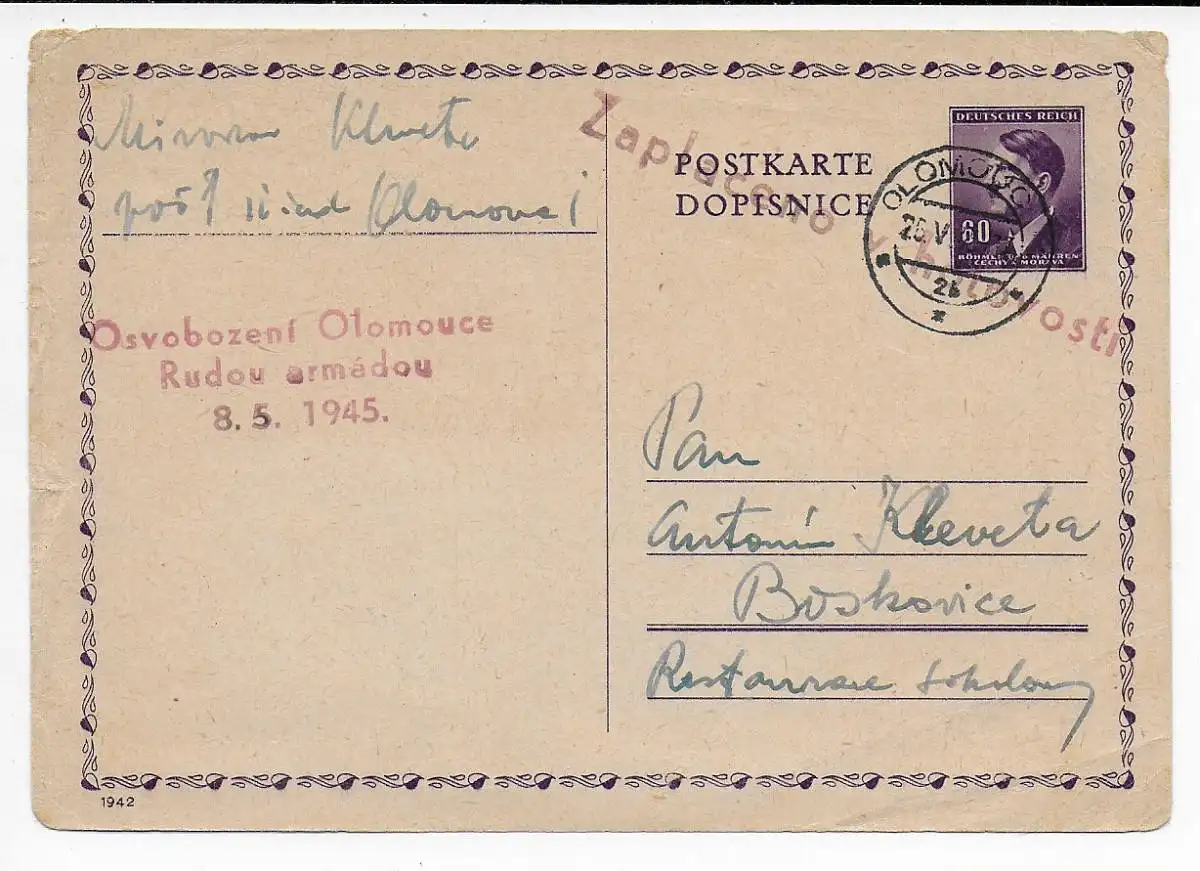 Miroslav Kleveta
pošt. úřad Olomouc 1
Osvobození Olomouce
Rudou armádou
8. 5. 1945.
Zaplaceno v hotovosti
POSTKARTE
DOPISNICE
DEUTSCHES REICH
60
BÖHMEN UND MÄHREN
ČECHY A MORAVA
OLOMOUC
26 V
2b
Pan
Antonín Kleveta
Boskovice
Restaurace
1942